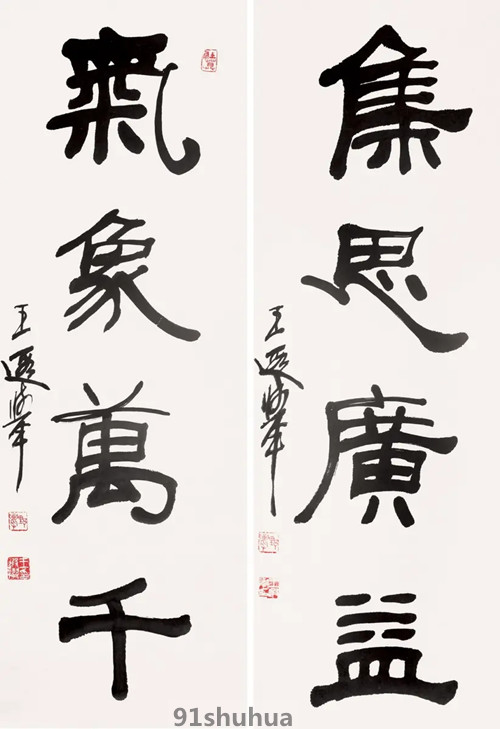 集思廣益
王遐舉
氣象萬千
王遐舉
91shuhua